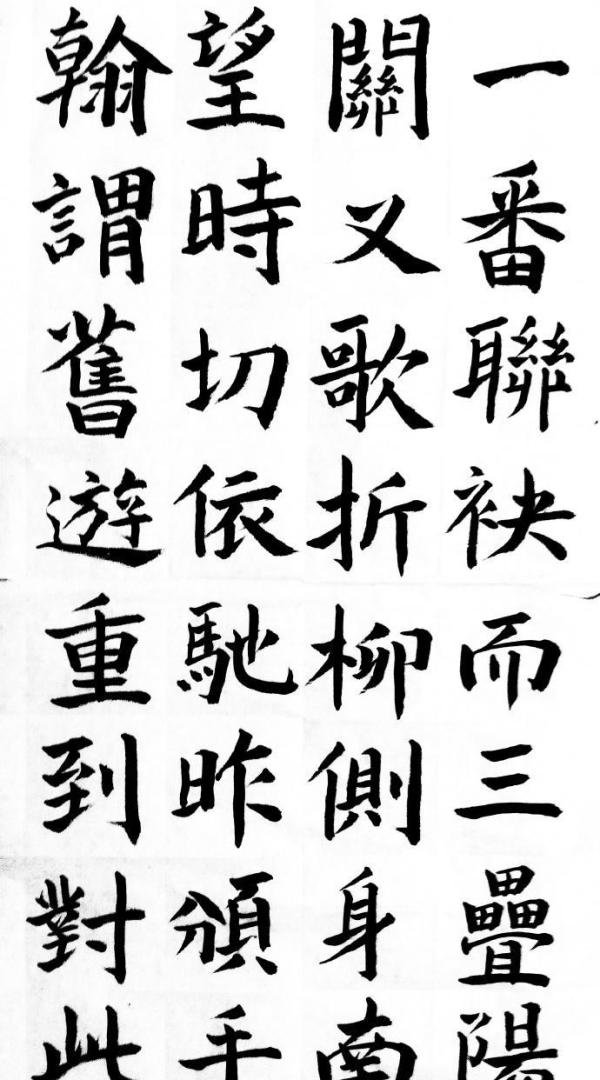 一番聯袂而三疊陽
關又歌折柳側身南
望時切依馳昨頒手
翰謂舊遊重到對此